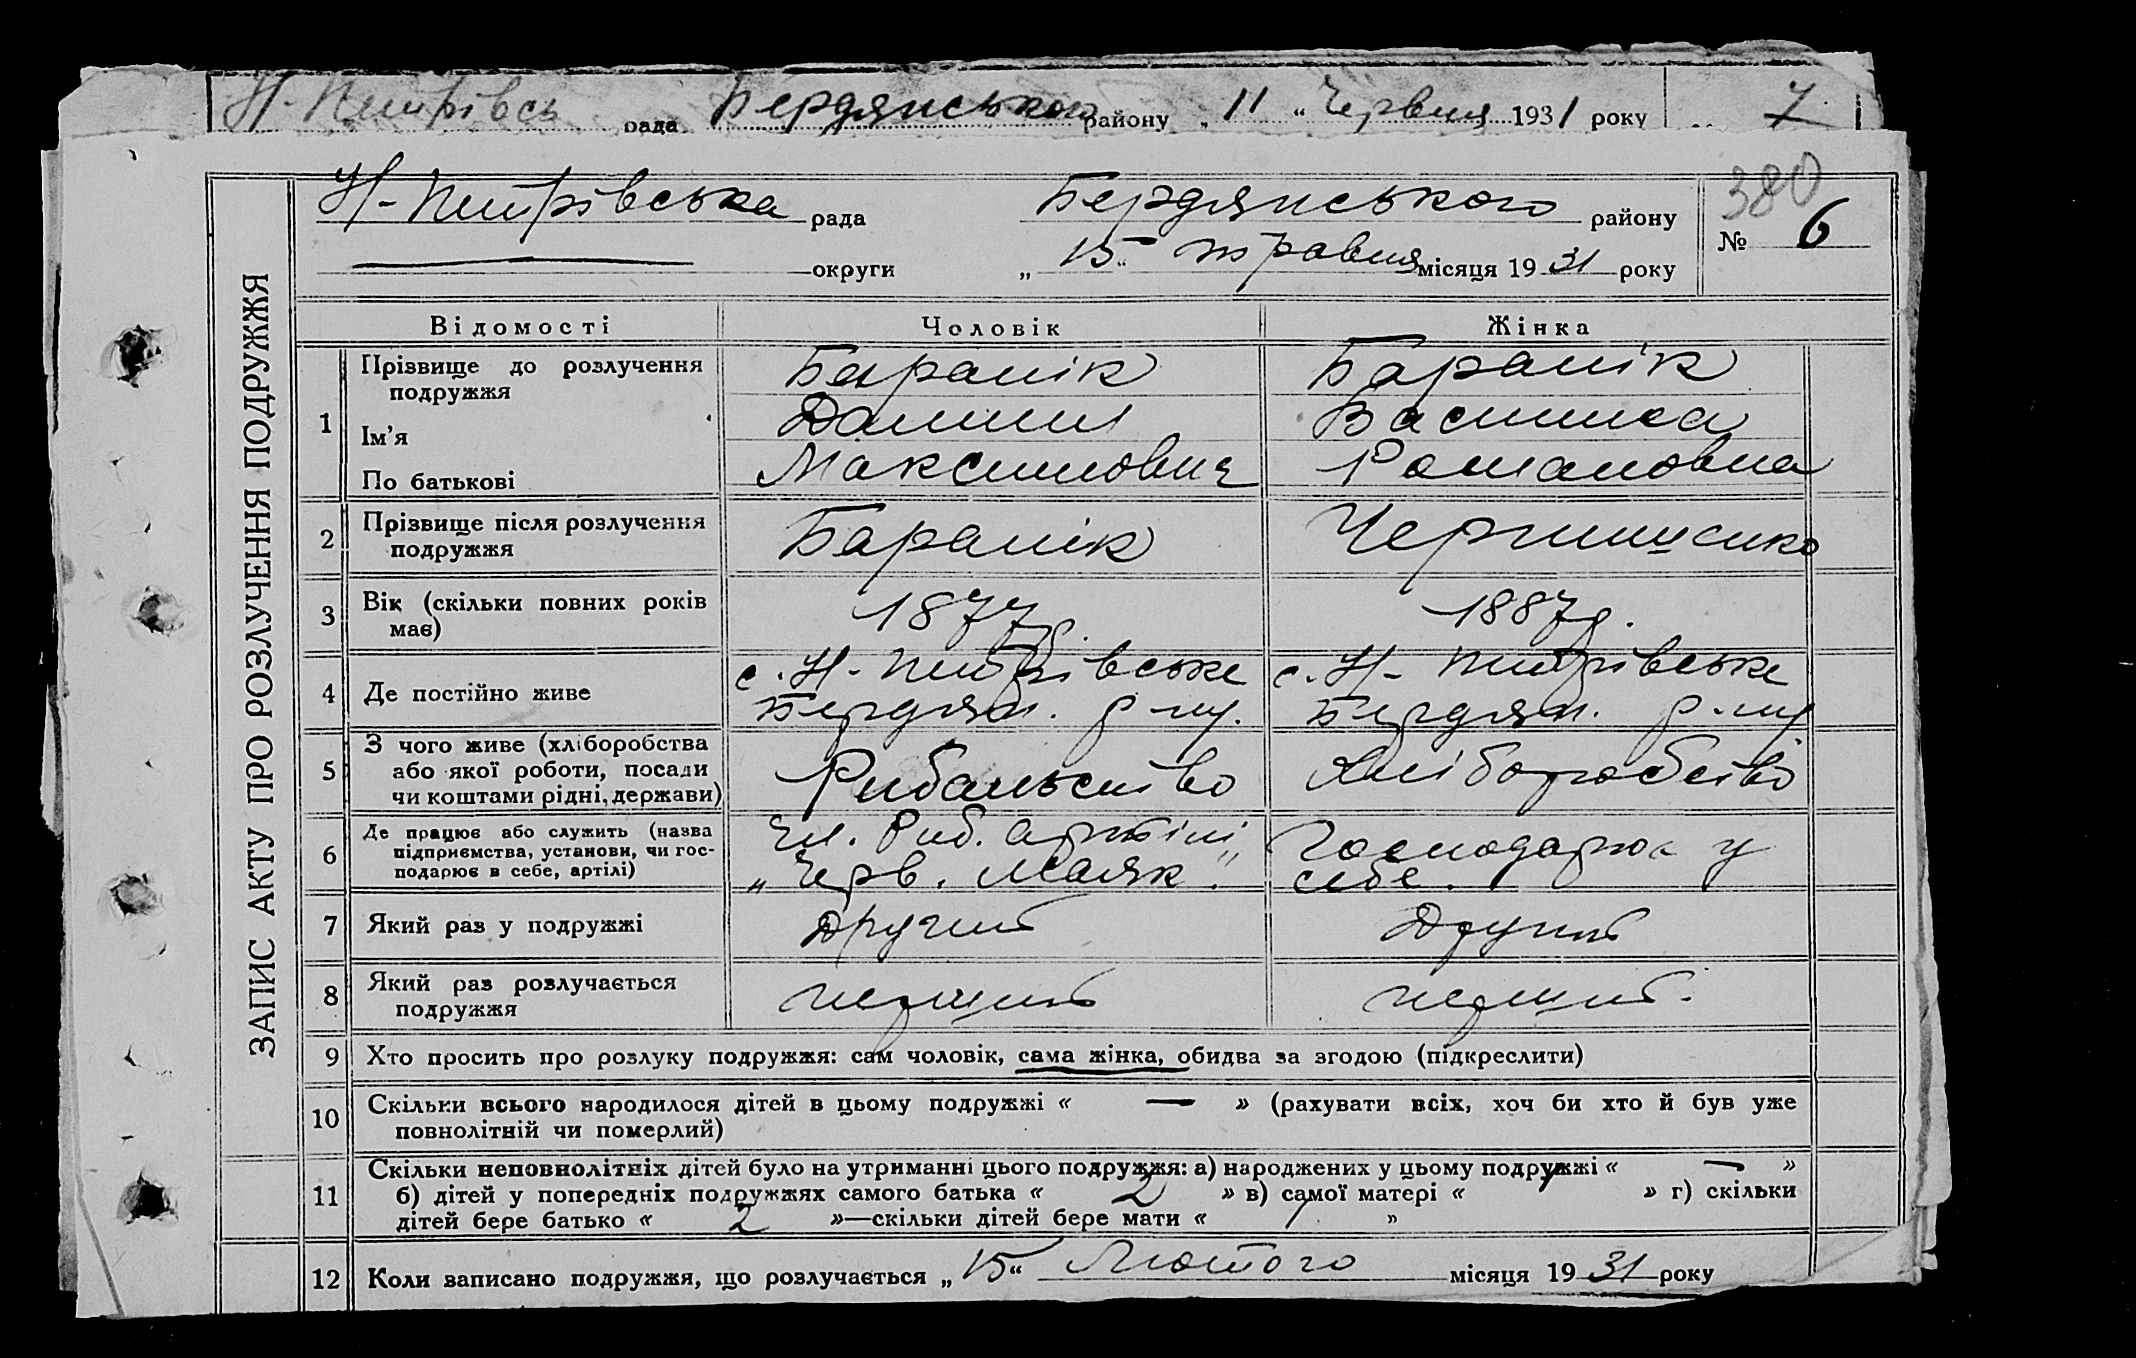 Н-Петрівсь рада Бердянського району „ 11 “ Червня 1931 року 7
380
Н-Петрівська рада Бердянського району
№ 6
округи „ 15 “ травня місяця 1931 року
ЗАПИС АКТУ ПРО РОЗЛУЧЕННЯ ПОДРУЖЖЯ
Відомості Чоловік Жінка
1 Прізвище до розлучення подружжя Баранік Баранік
Ім'я Данило Василиса
По батькові Максимович Романовна
2 Прізвище після розлучення Баранік
подружжя
3 Вік (скільки повних років 1877 р. 1887 р.
має)
4 Де постійно живе с. Н-Петрівське с. Н-Петрівське
Бердян. р-ну. Бердян. р-ну
5 З чого живе (хліборобства
або якої роботи, посади Рибальство Хліборобство
чи коштами рідні, держави)
6 Де працює або служить (назва Чл. Риб. артілі Господарює у
підприємства, установи, чи гос- „Черв. Маяк". себе.
подарює в себе, артілі)
7 Який раз у подружжі Другий Другий
8 Який раз розлучається перший перший.
подружжя
9 Хто просить про розлуку подружжя: сам чоловік, сама жінка, обидва за згодою (підкреслити)
10 Скільки всього народилося дітей в цьому подружжі « — » (рахувати всіх, хоч би хто й був уже
повнолітній чи померлий)
11 Скільки неповнолітніх дітей було на утриманні цього подружжя: а) народжених у цьому подружжі « — »
б) дітей у попередніх подружжях самого батька « 2 » в) самої матері « 1 » г) скільки
дітей бере батько « 2 »—скільки дітей бере мати « 1 »
12 Коли записано подружжя, що розлучається „ 15 “ Лютого місяця 1931 року